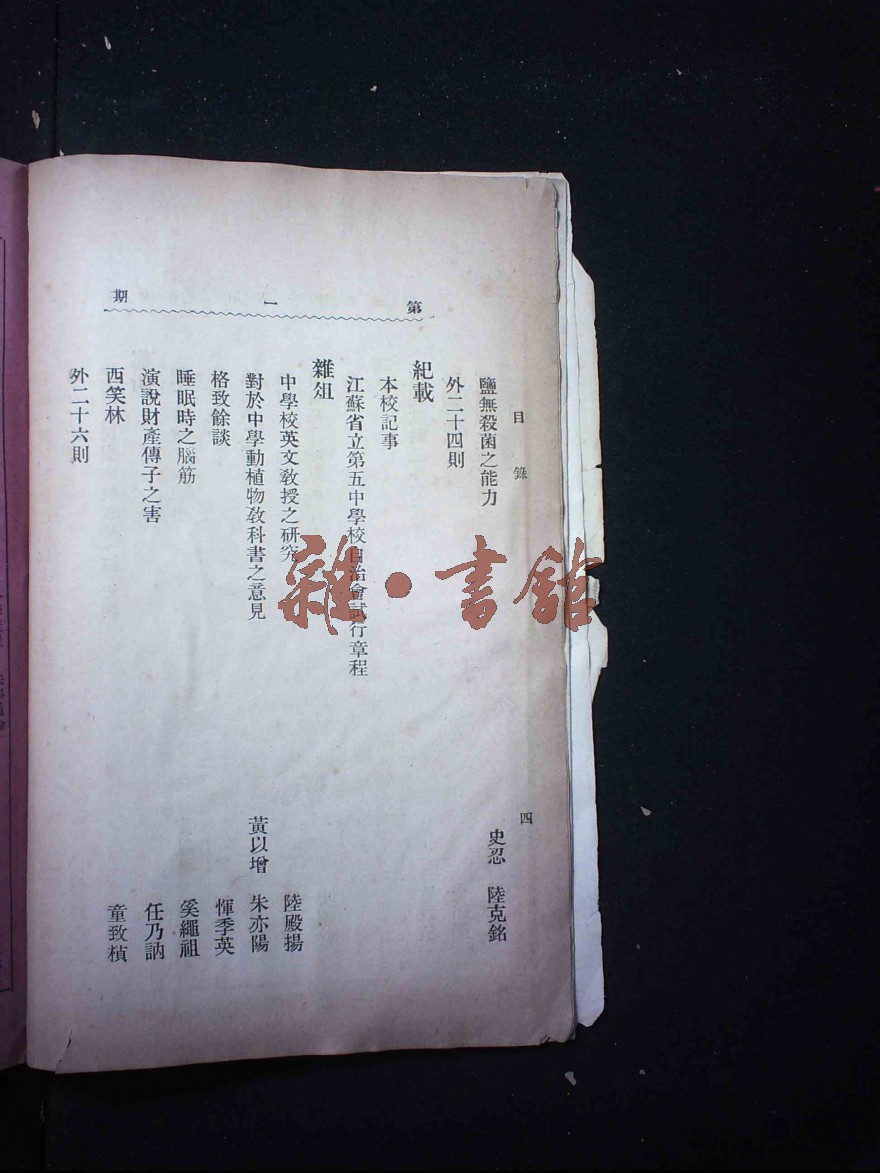 第一期
目錄　四
鹽無殺菌之能力　史忍　陸克銘
外二十四則
紀載
本校記事
江蘇省立第五中學校自治會試行章程
雜俎
中學校英文敎授之研究　陸殿揚
對於中學動植物敎科書之意見　黃以增　朱亦陽
格致餘談　惲季英
睡眠時之腦筋　奚繩祖
演說財產傳子之害　任乃訥
西笑林　童致楨
外二十六則
雜·書館